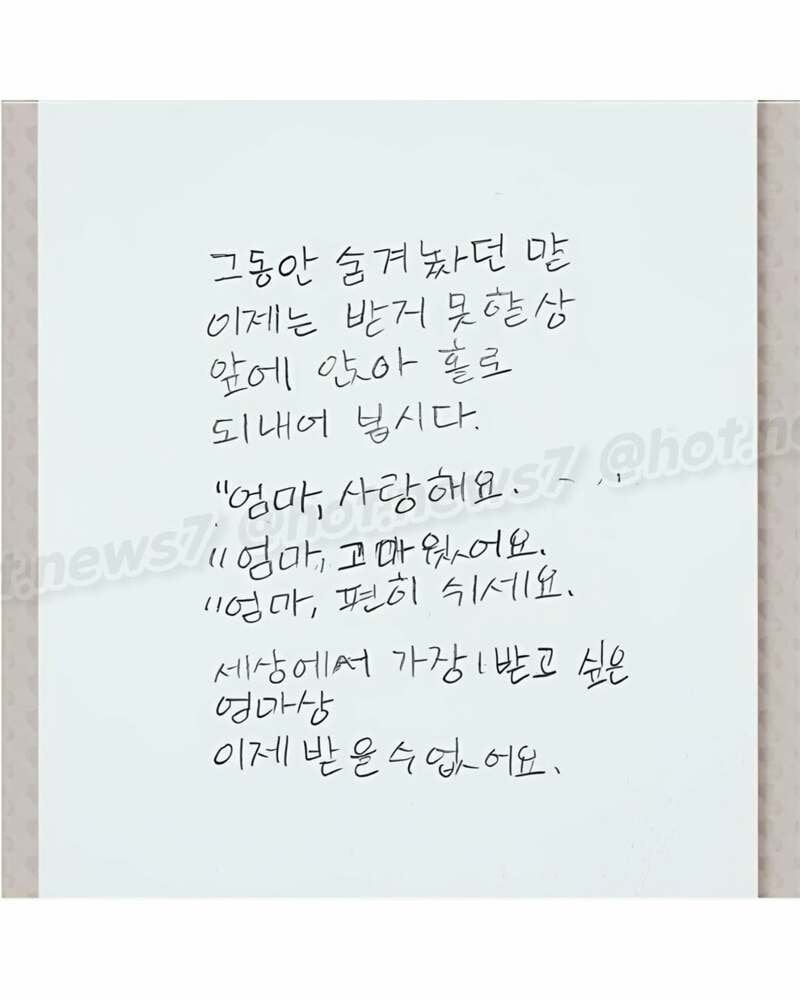 그동안 숨겨놨던 말
이제는 받거 못할상
앞에 앉아 홀로
되내어 봅시다.
"엄마, 사랑해요.
"엄마, 고마웠어요.
"엄마, 편히 쉬세요.
세상에서 가장 받고 싶은
엄마상
이제 받을수 없어요.
@hot.news7 @hot.news7 @hot.ne